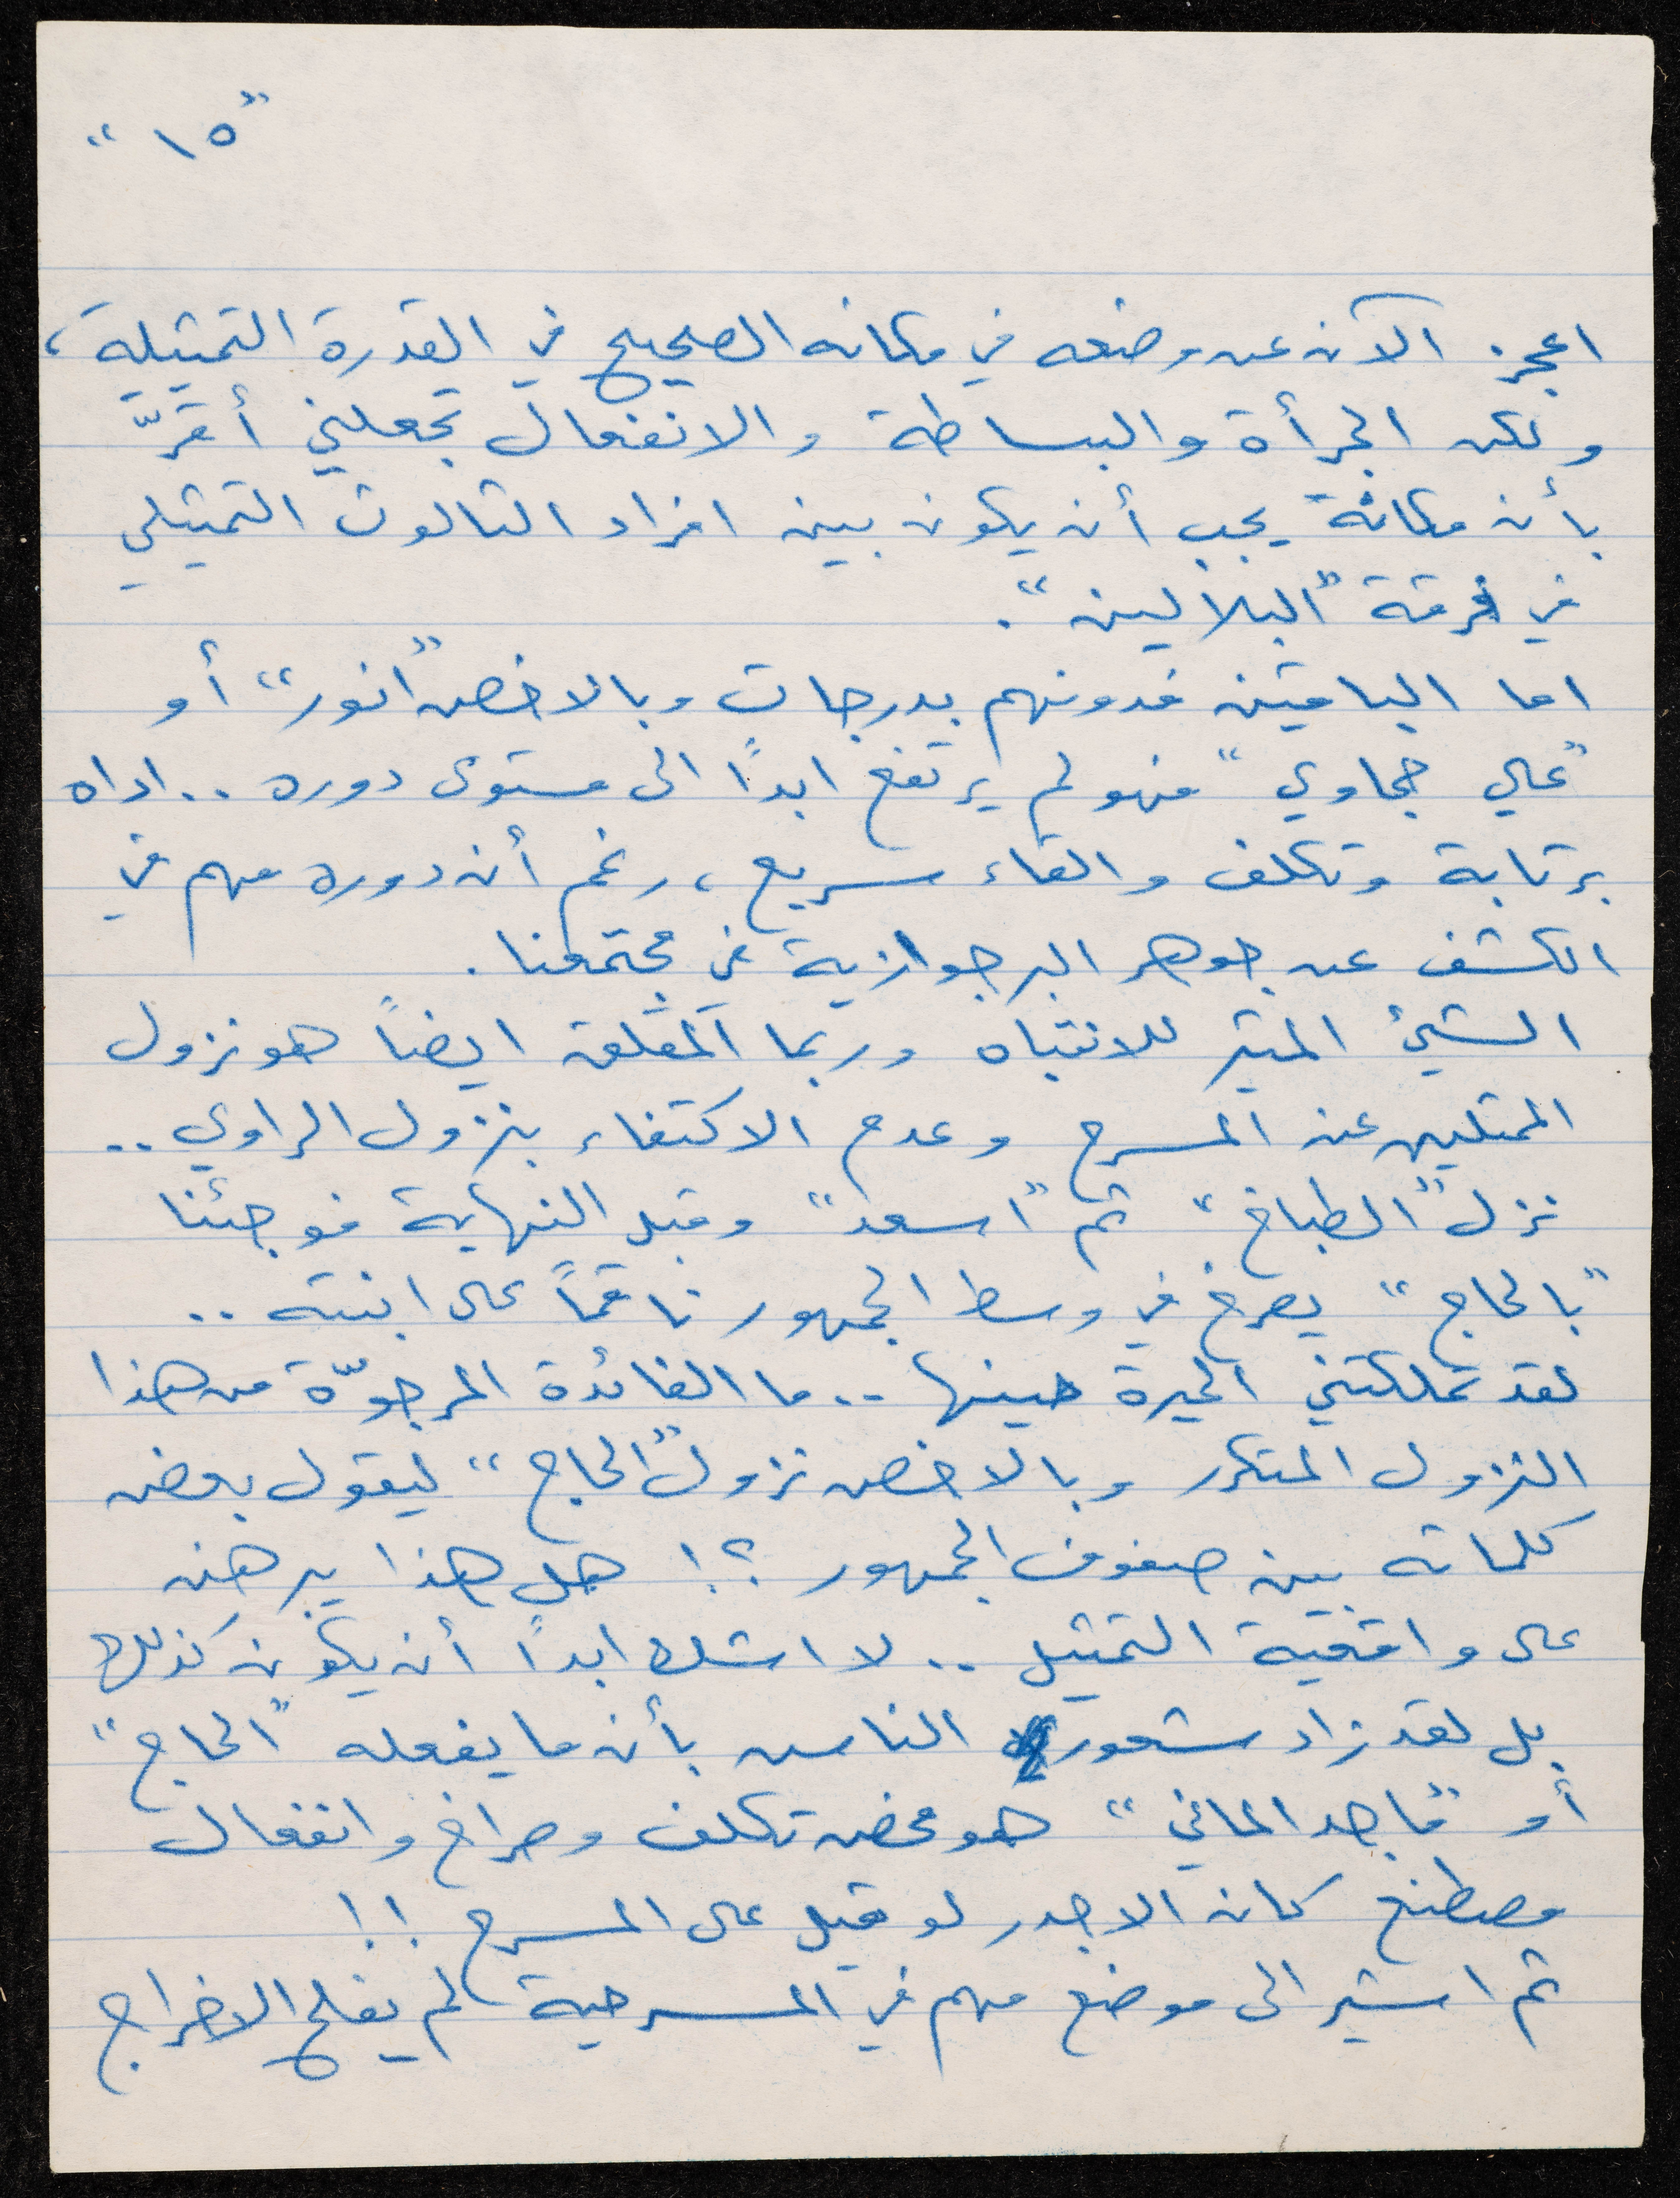 "١٥"
اعجز الآن عن وضعه في مكانه الصحيح في القدرة التمثيلية،
ولكن الجرأة والبساطة والانفعال تجعلني أقرّ
بأن مكانه يجب أن يكون بين افراد الثالوث التمثيلي
في فرقة "البلالين".
اما الباقين فدونهم بدرجات وبالاخص "انور" أو
"علي حجاوي" فهو لم يرتفع ابداً الى مستوى دوره .. اداه
برتابة وتكلف والقاء سريع، رغم أن دوره مهم في
الكشف عن جوهر البرجوازية في مجتمعنا.
الشيئ المثير للانتباه وربما المقلق ايضاً هو نزول
الممثلين عن المسرح وعدم الاكتفاء بنزول الراوي ..
نزل "الطباخ" ثم "اسعد" وقبل النهاية فوجئنا
"بالحاج" يصرخ في وسط الجمهور ناقماً على ابنته ..
لقد تملكتني الحيرة حينها .. ما الفائدة المرجوّة من هذا
النزول المتكرر وبالاخص نزول "الحاج" ليقول بعض
كلماته بين صفوف الجمهور ؟! هل هذا يبرهن
على واقعية التمثيل .. لا اشك ابداً أن يكون كذلك
بل لقد زاد شعور الناس بأن ما يفعله "الحاج"
أو "ماجد الماني" هو محض تكلف وصراخ وانفعال
مصطنع كان الاجدر لو قيل على المسرح !!
ثم اشير الى موضع مهم في المسرحية لم يفلح الاخراج